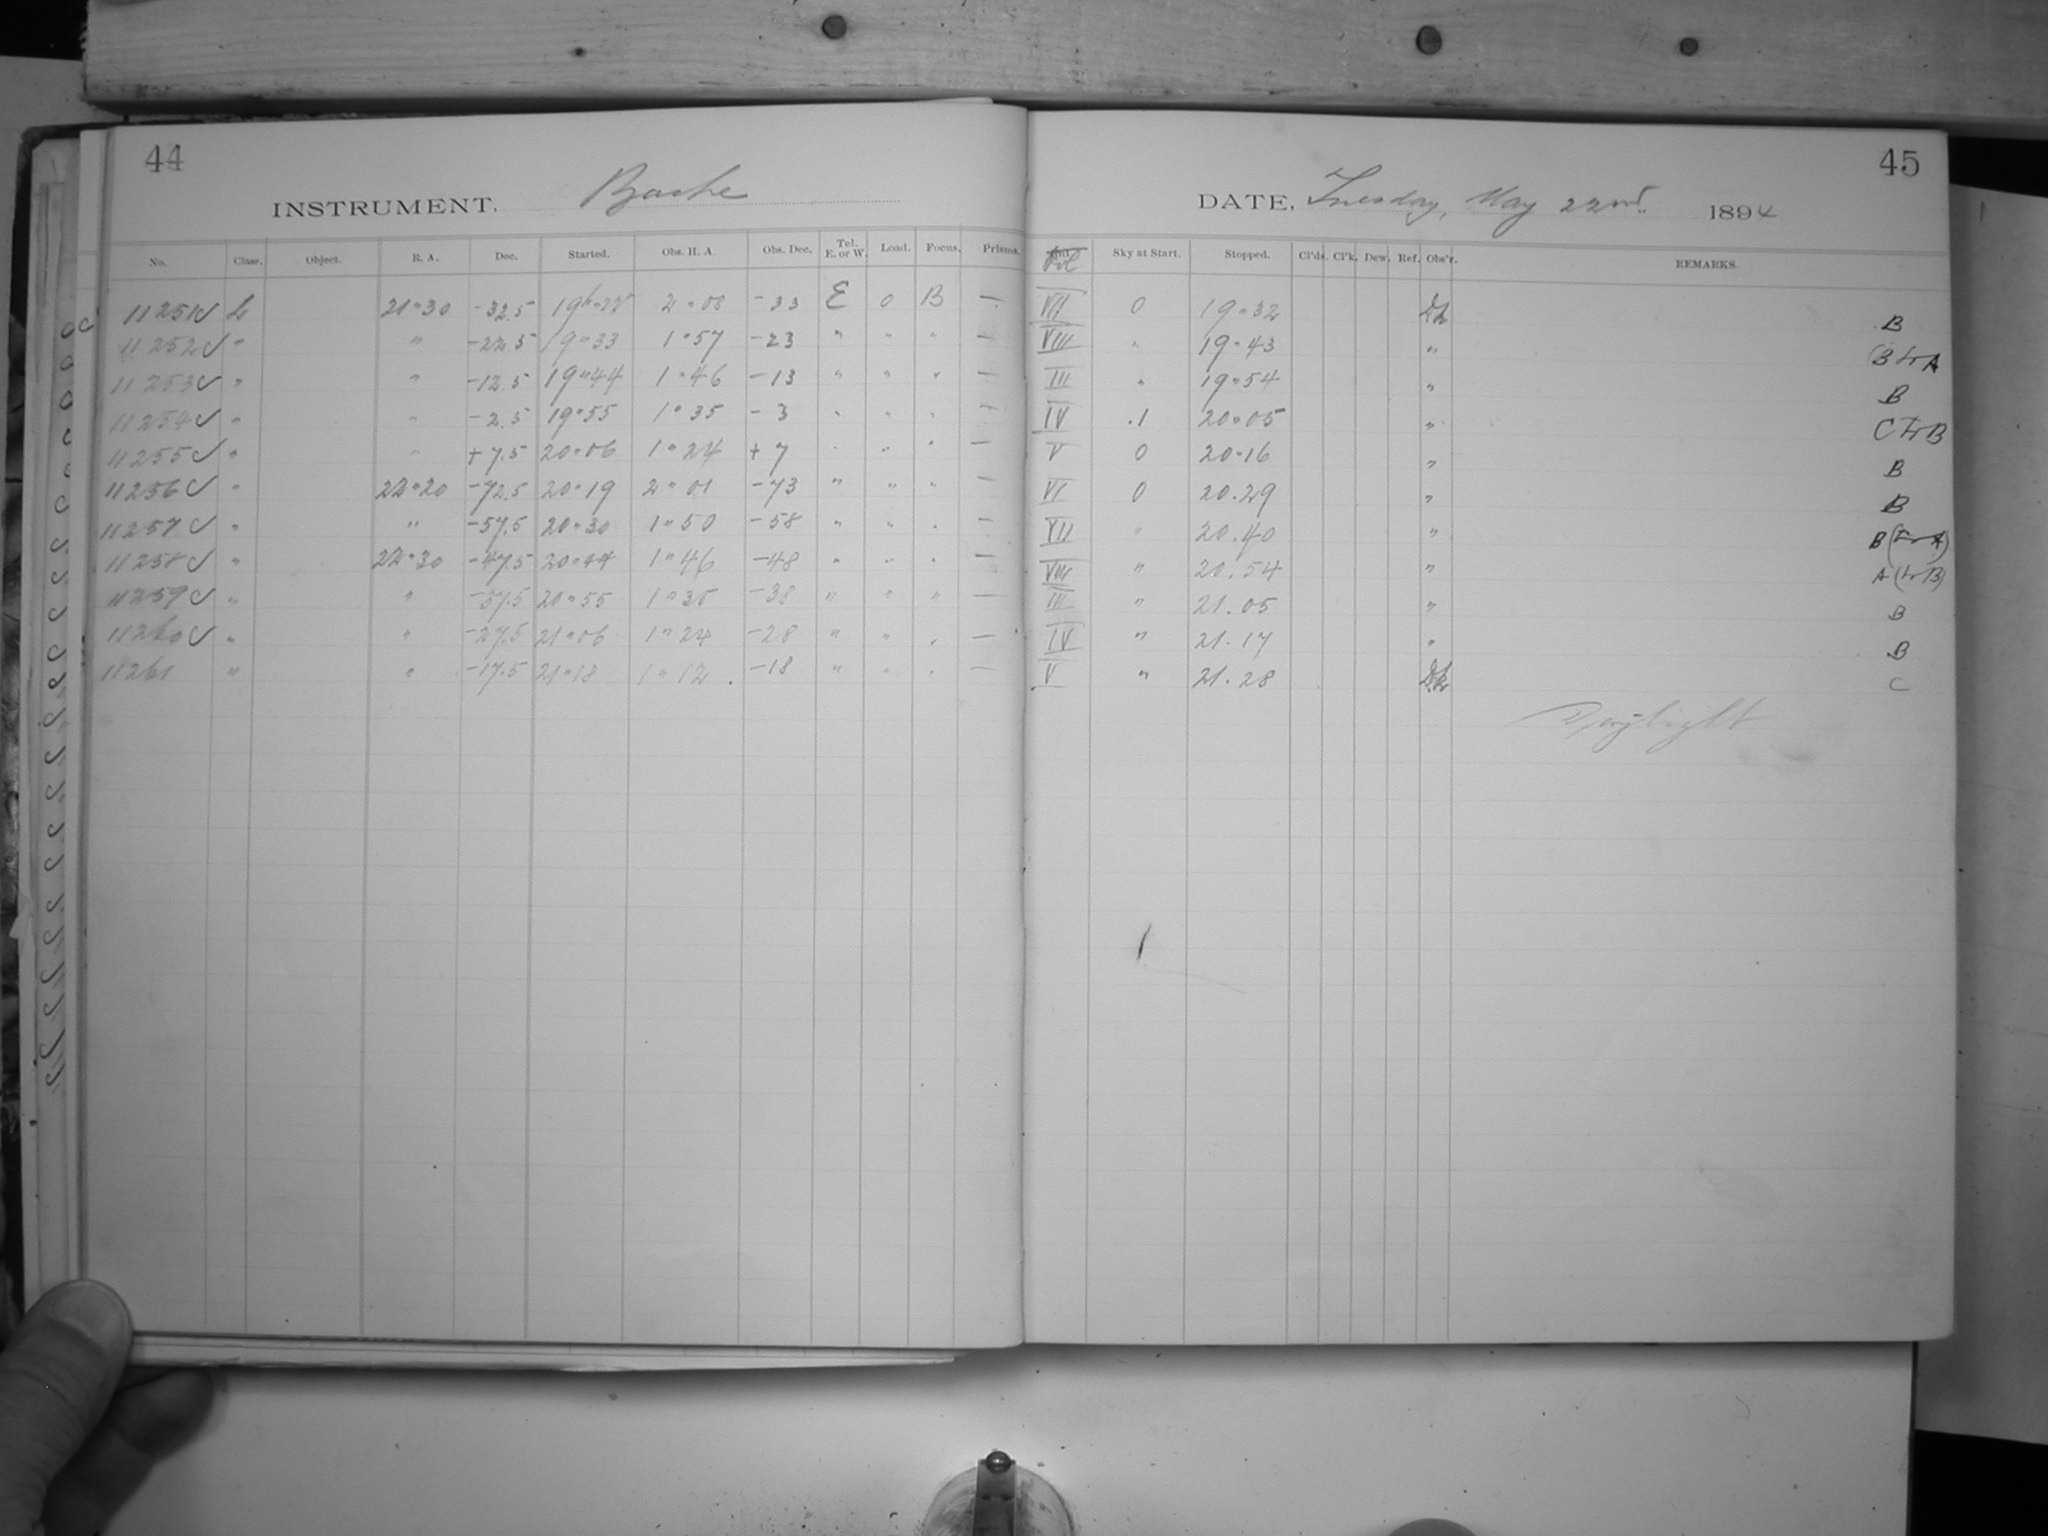 44
INSTRUMENT, Bache
No. Class. Object. R. A. Dec. Started. Obs. H. A. Obs. Dec. Tel. E. or W. Load. Focus. Prisms.
11251 L 21 " 30 -32.5 2 " 03 -33 E 0 B —
11252 " " -22.5 19 " 33 1 " 57 -23 " " " —
11253 " " -12.5 19 " 44 1 " 46 -13 " " " —
11254 " " -2.5 19 " 55 1 " 35 -3 " " " —
11255 " " +7.5 20 " 06 1 " 24 +7 " " " —
11256 " 22 " 20 -72.5 20 " 19 2 " 01 -73 " " " —
11257 " " -57.5 20 " 30 1 " 50 -58 " " " —
11258 " 22 " 30 -47.5 20 " 44 1 " 46 -48 " " " —
11259 " " -37.5 20 " 55 1 " 35 -38 " " " —
11260 " " -27.5 21 " 06 1 " 24 -28 " " " —
11261 " " -17.5 21 " 18 1 " 12 -18 " " " —
45
DATE, Tuesday, May 22nd. 1894
Sky at Start. Stopped. Cl'ds. Cl'k. Dew. Ref. Obs'r. REMARKS.
VII 0 19 " 32 B
VIII " 19 " 43 " B to A
III " 19 " 54 " B
IV .1 20 " 05 " C to B
V 0 20 " 16 " B
VI 0 20.29 " B
VII " 20.40 " B (to A)
VIII " 20.54 " A (to B)
III " 21.05 " B
IV " 21.17 " B
V " 21.28 C
Daylight